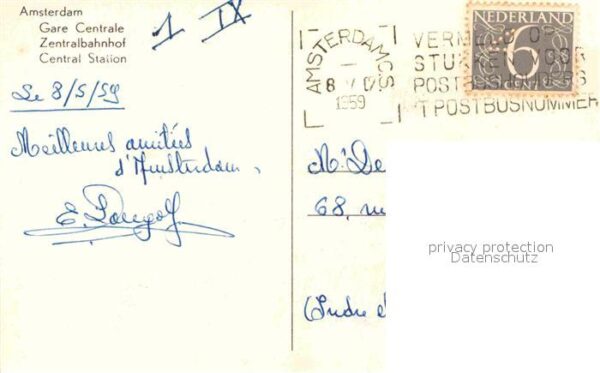 Amsterdam
Gare Centrale
Zentralbahnhof
Central Station
1 IX
Le 8/5/59
Meilleures amitiés
d'Amsterdam.
E.
AMSTERDAM C.S
8 V
1959
VERMELD OP
STUKKEN VOOR
POSTBUSHOUDERS
'T POSTBUSNUMMER
NEDERLAND
6
CENT
68, rue
(Indre
privacy protection
Datenschutz